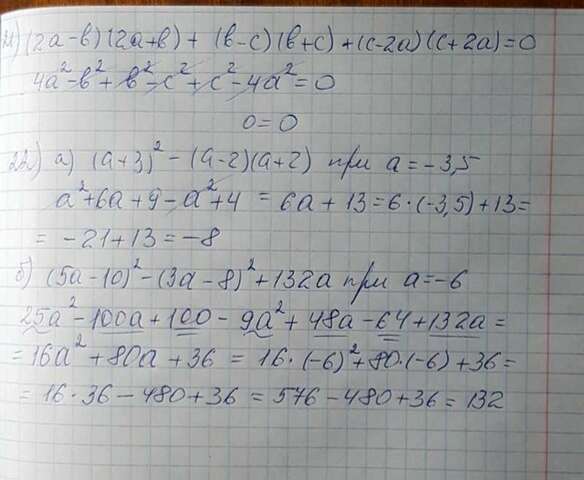 21) (2a-b)(2a+b) + (b-c)(b+c) + (c-2a)(c+2a)=0
4a²-b²+b²-c²+c²-4a²=0
0=0
22) а) (a+3)² - (a-2)(a+2) при a=-3,5
a²+6a+9-a²+4 = 6a+13=6·(-3,5)+13=
= -21+13=-8
б) (5a-10)²-(3a-8)²+132a при a=-6
25a²-100a+100-9a²+48a-64+132a=
=16a²+80a+36 = 16·(-6)²+80·(-6)+36=
= 16·36-480+36 = 576-480+36=132